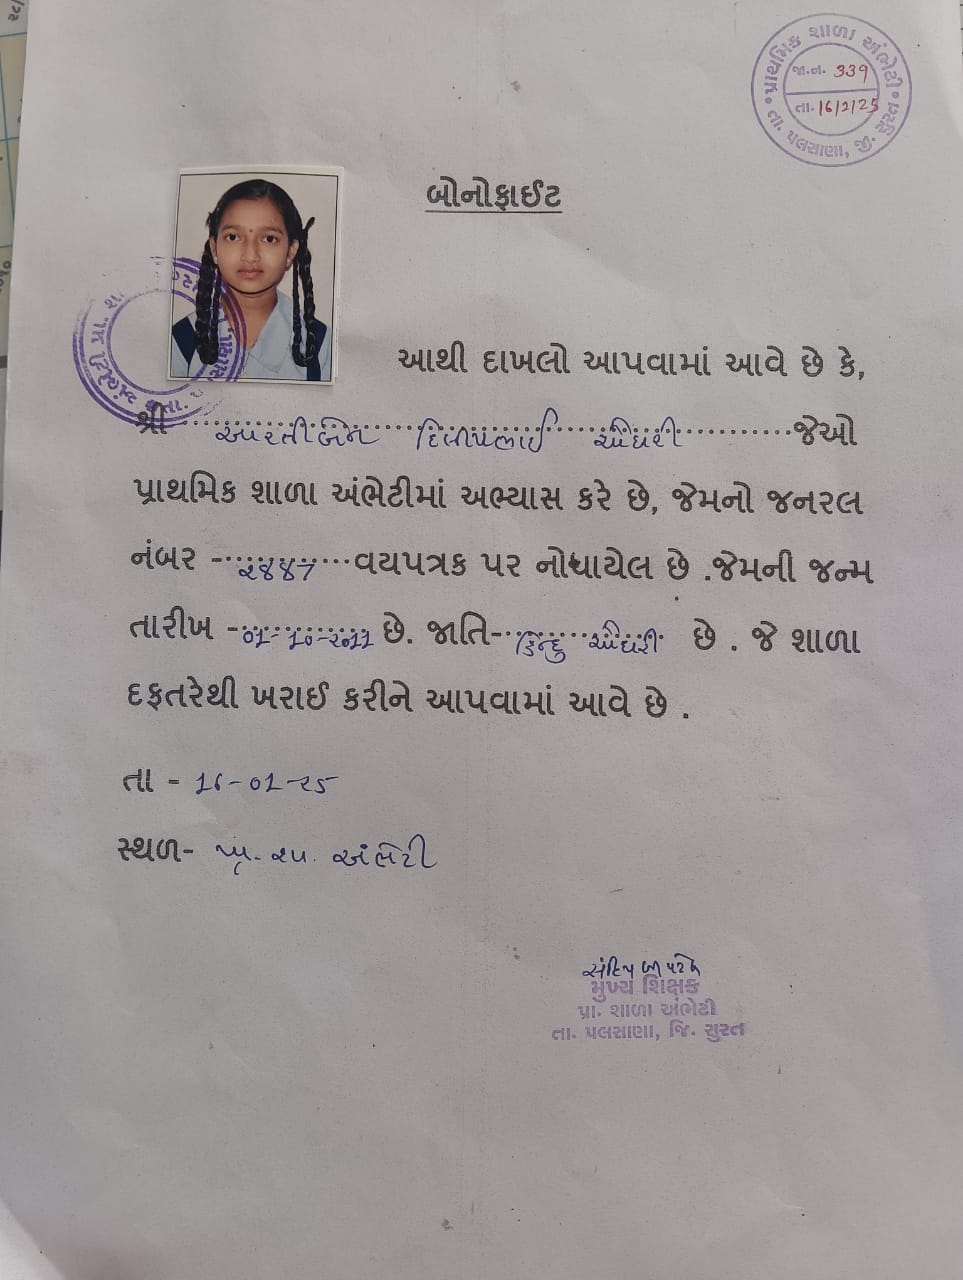 પ્રાથમિક શાળા અંભેટી
જા.નં. 339
તા. 16/2/25
તા. પલસાણા, જી. સુરત
બોનોફાઈટ
આથી દાખલો આપવામાં આવે છે કે,
શ્રી આરતીબેન દિલીપભાઈ ચૌધરી જેઓ
પ્રાથમિક શાળા અંભેટીમાં અભ્યાસ કરે છે, જેમનો જનરલ
નંબર - ૨૪૪૭ વયપત્રક પર નોધાયેલ છે .જેમની જન્મ
તારીખ - ૦1-10-૨૦11 છે. જાતિ- હિન્દુ ચૌધરી છે . જે શાળા
દફતરેથી ખરાઈ કરીને આપવામાં આવે છે .
તા - 16-01-૨૫
સ્થળ- અંભેટી
મુખ્ય શિક્ષક
પ્રા. શાળા અંભેટી
તા. પલસાણા, જિ. સુરત